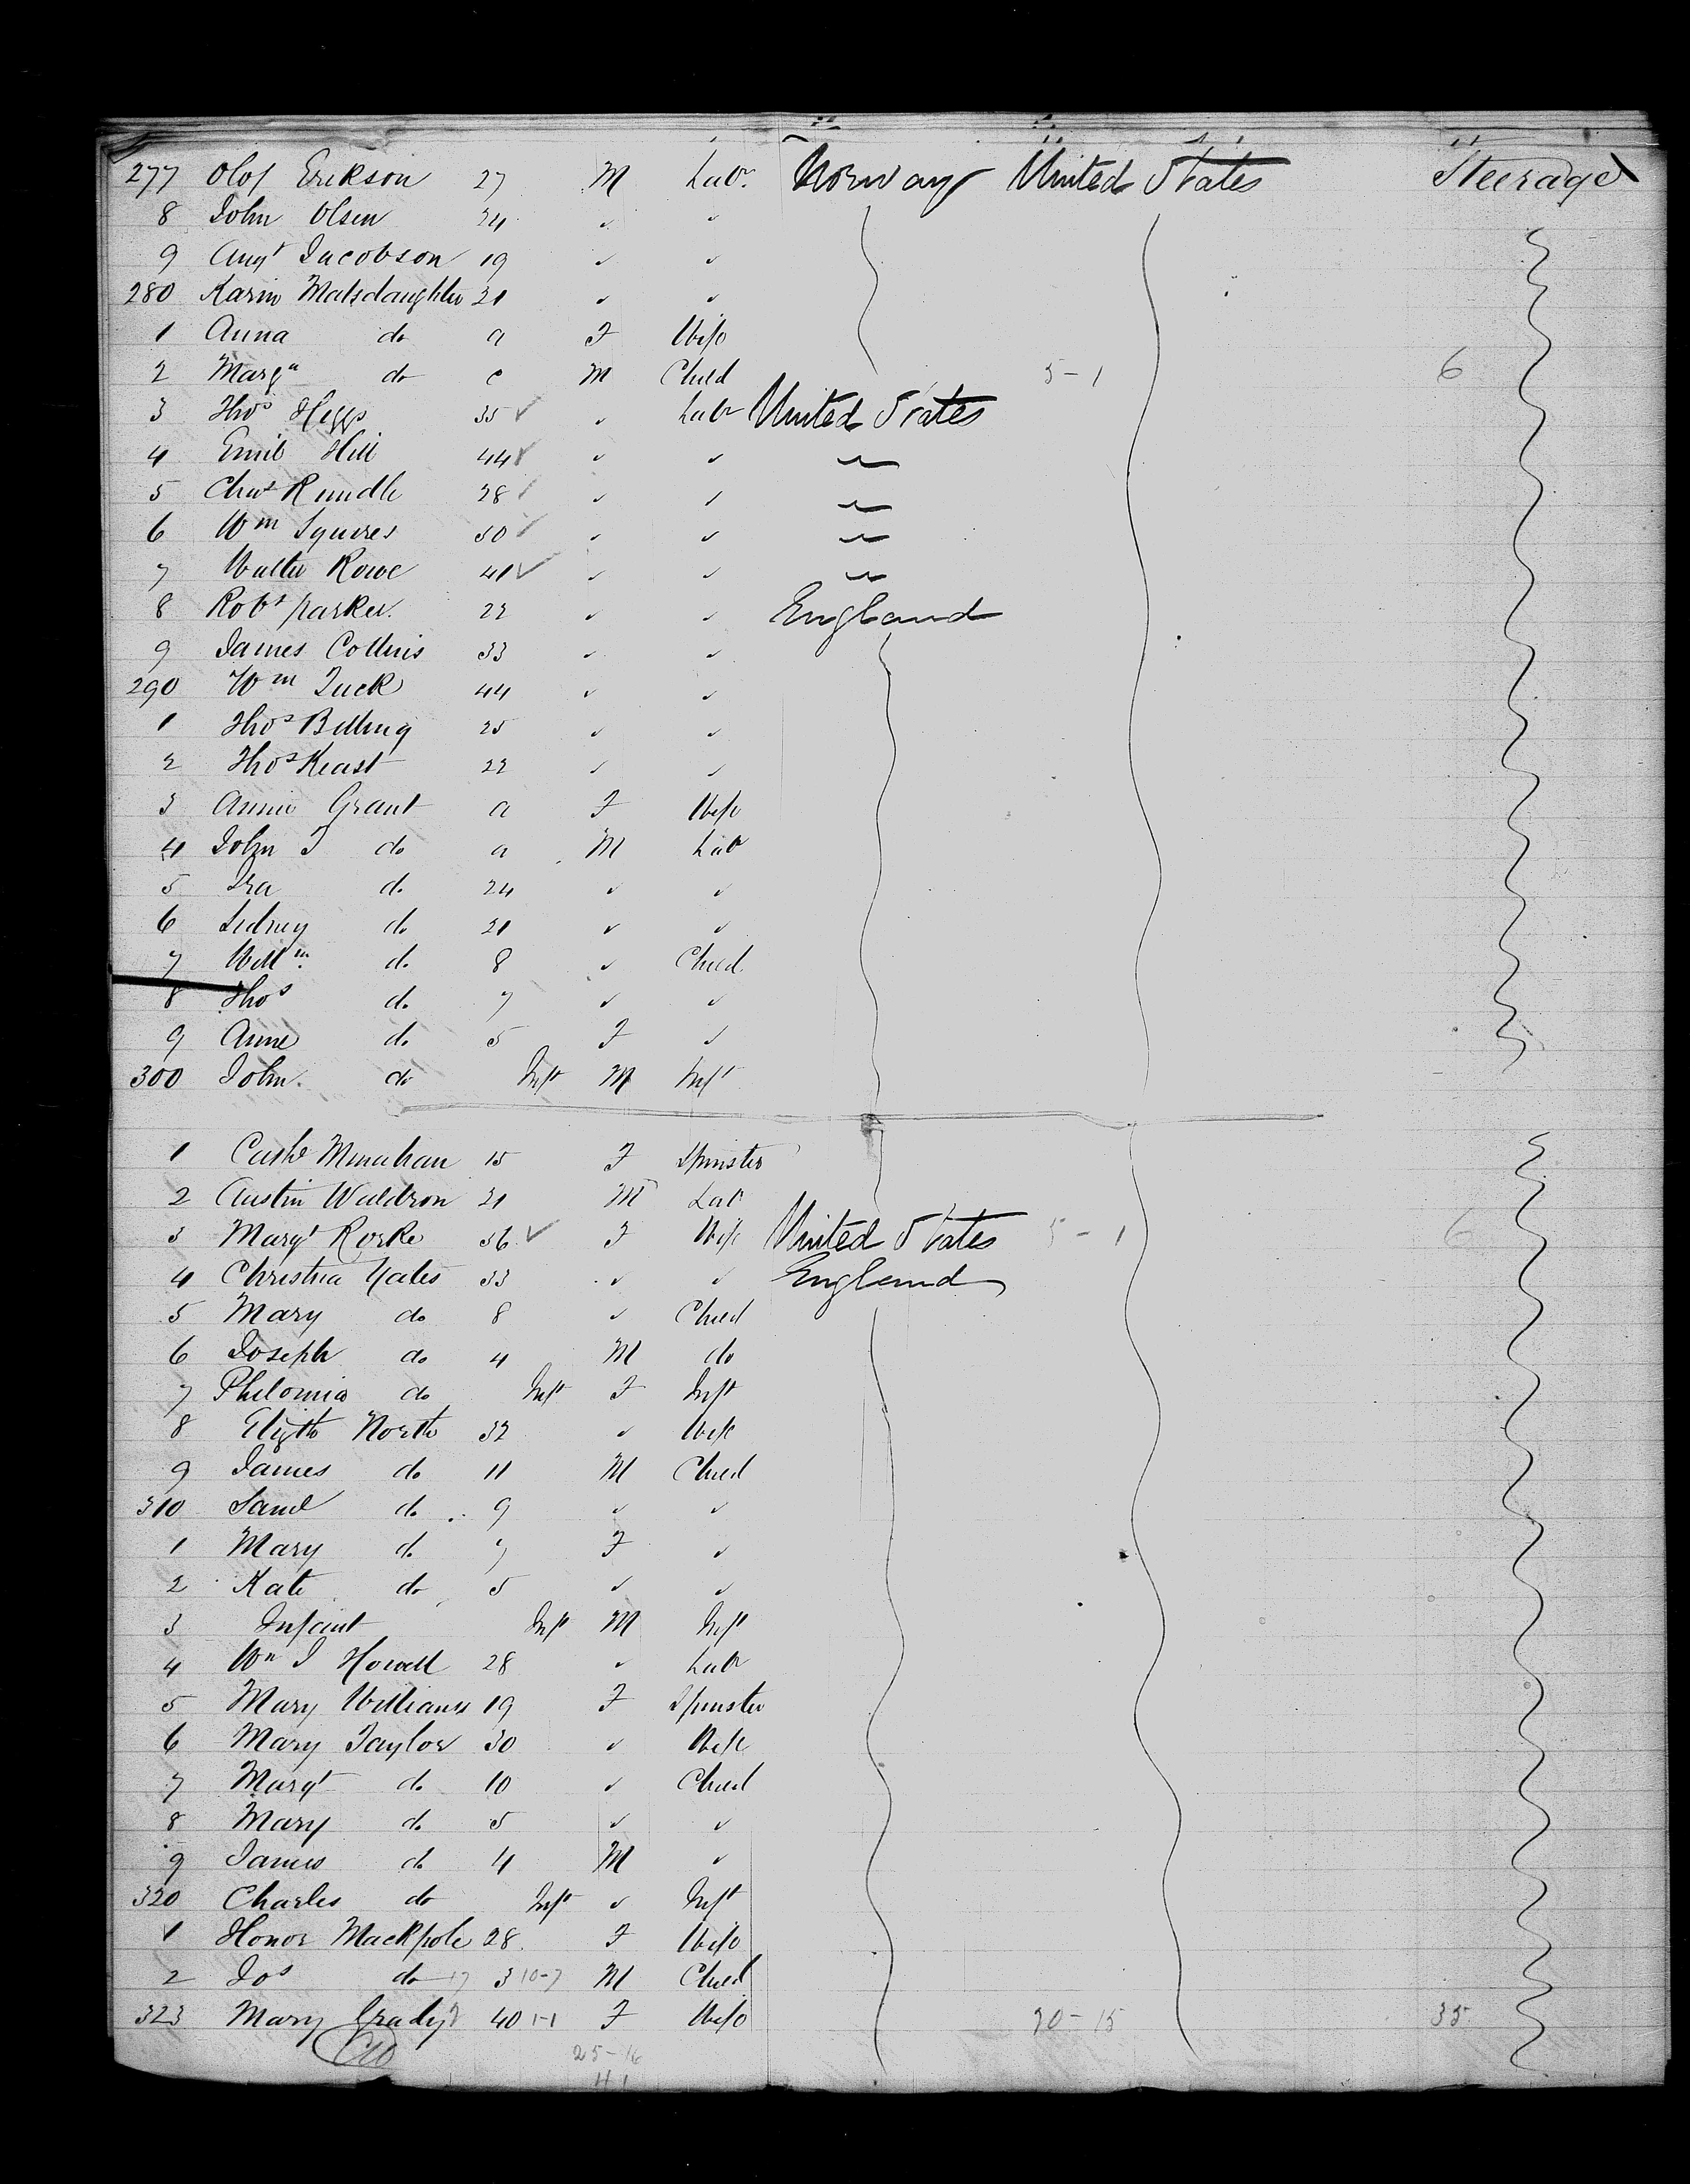 277 Olof Erikson 27 M Labr. Norway United States Steerage
8 John Olsen 24 " "
9 Augt Jacobson 19 " "
280 Karin Matsdaughter 21 " "
1 Anna do a F Wife
2 Marga do c M Child 5-1 6
3 Thos Heggs 35 ✓ " Labr United States
4 Emib Hill 44 ✓ " " "
5 Chas Rundle 28 ✓ " " "
6 Wm Squires 30 ✓ " " "
7 Walter Rowe 41 ✓ " " "
8 Robt Parker. 22 " " England
9 James Collins 33 " "
290 Wm Tuck 44 " "
1 Thos Billing 25 " "
2 Thos Keast 22 " "
3 Annie Grant a F Wife
4 John J do a M Lab
5 Ira do 24 " "
6 Sidney do 21 " "
7 Willm. do 8 " Child
8 Thos do 7 " "
9 Anne do 5 F "
300 John. do Inft M Inft
1 Cathe Minahan 15 F Spinster
2 Austin Waldron 21 M Lab
3 Margt Rorke 36 ✓ F Wife United States 5-1 6
4 Christina Yates 33 " " England
5 Mary do 8 " Child
6 Joseph do 4 M do
7 Philomia do Inft F Inft
8 Elizth North 32 " Wife
9 James do 11 M Child
310 Saml do 9 " "
1 Mary do 7 F "
2 Kate do 5 " "
3 Infant Inft M Inft
4 Wm J Howell 28 " Labr
5 Mary Williams 19 F Spinster
6 Mary Taylor 30 " Wife
7 Margt do 10 " Child
8 Mary do 5 " "
9 James do 4 M "
320 Charles do Inft " Inft
1 Honor Mackpole 28. F Wife
2 Jos do 17 3 10-7 M Child
323 Mary Grady 40 1-1 F Wife 20-15 35
25-16
41